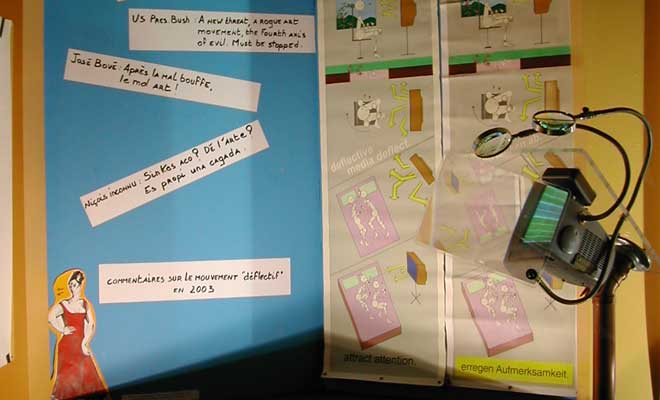 US Pres Bush : A new threat, a rogue art
movement, the fourth axis
of evil. Must be stopped.
José Bové : Après la mal bouffe,
le mal art !
Niçois inconnu : Sinkes aco ? Dé l'arte ?
Es propi una cagada.
COMMENTAIRES SUR LE MOUVEMENT "déflectif"
EN 2003
deflective
media deflect
attract attention.
erregen Aufmerksamkeit.